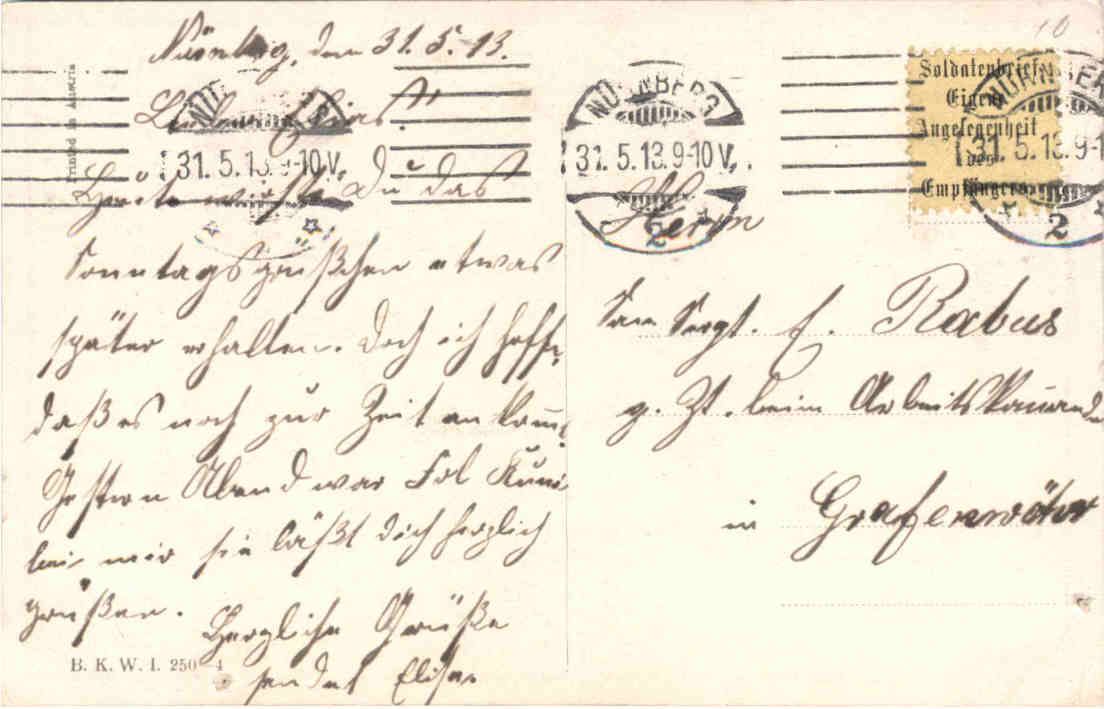 Nürnberg, den 31. 5. 13.
Printed in Austria
Heute wirst Du das
Sonntagsgrüßchen etwas
später erhalten. Doch ich hoffe,
daß es noch zur Zeit ankommt.
Gestern Abend war Frl
bei mir sie läßt dich herzlich
grüßen. Herzliche Grüße
sendet Elise.
B. K. W. I. 250-4
NÜRNBERG
31. 5. 13. 9-10 V.
2
Soldatenbrief.
Eigene
Angelegenheit
des
Empfängers.
NÜRNBERG
31. 5. 13. 9-1
2
10
Herrn
San Sergt. Rabus
z. Zt. beim Arbeitskomando
in Grafenwöhr